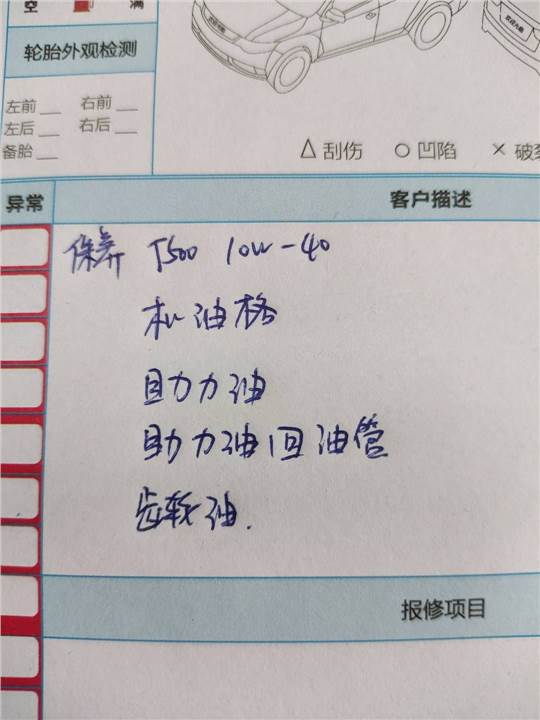 空 满
轮胎外观检测
左前 __ 右前 __
左后 __ 右后 __
备胎 __
△ 刮伤 ○ 凹陷 × 破裂
异常 客户描述
保养 T500 10W-40
机油格
助力油
助力油回油管
齿轮油.
报修项目